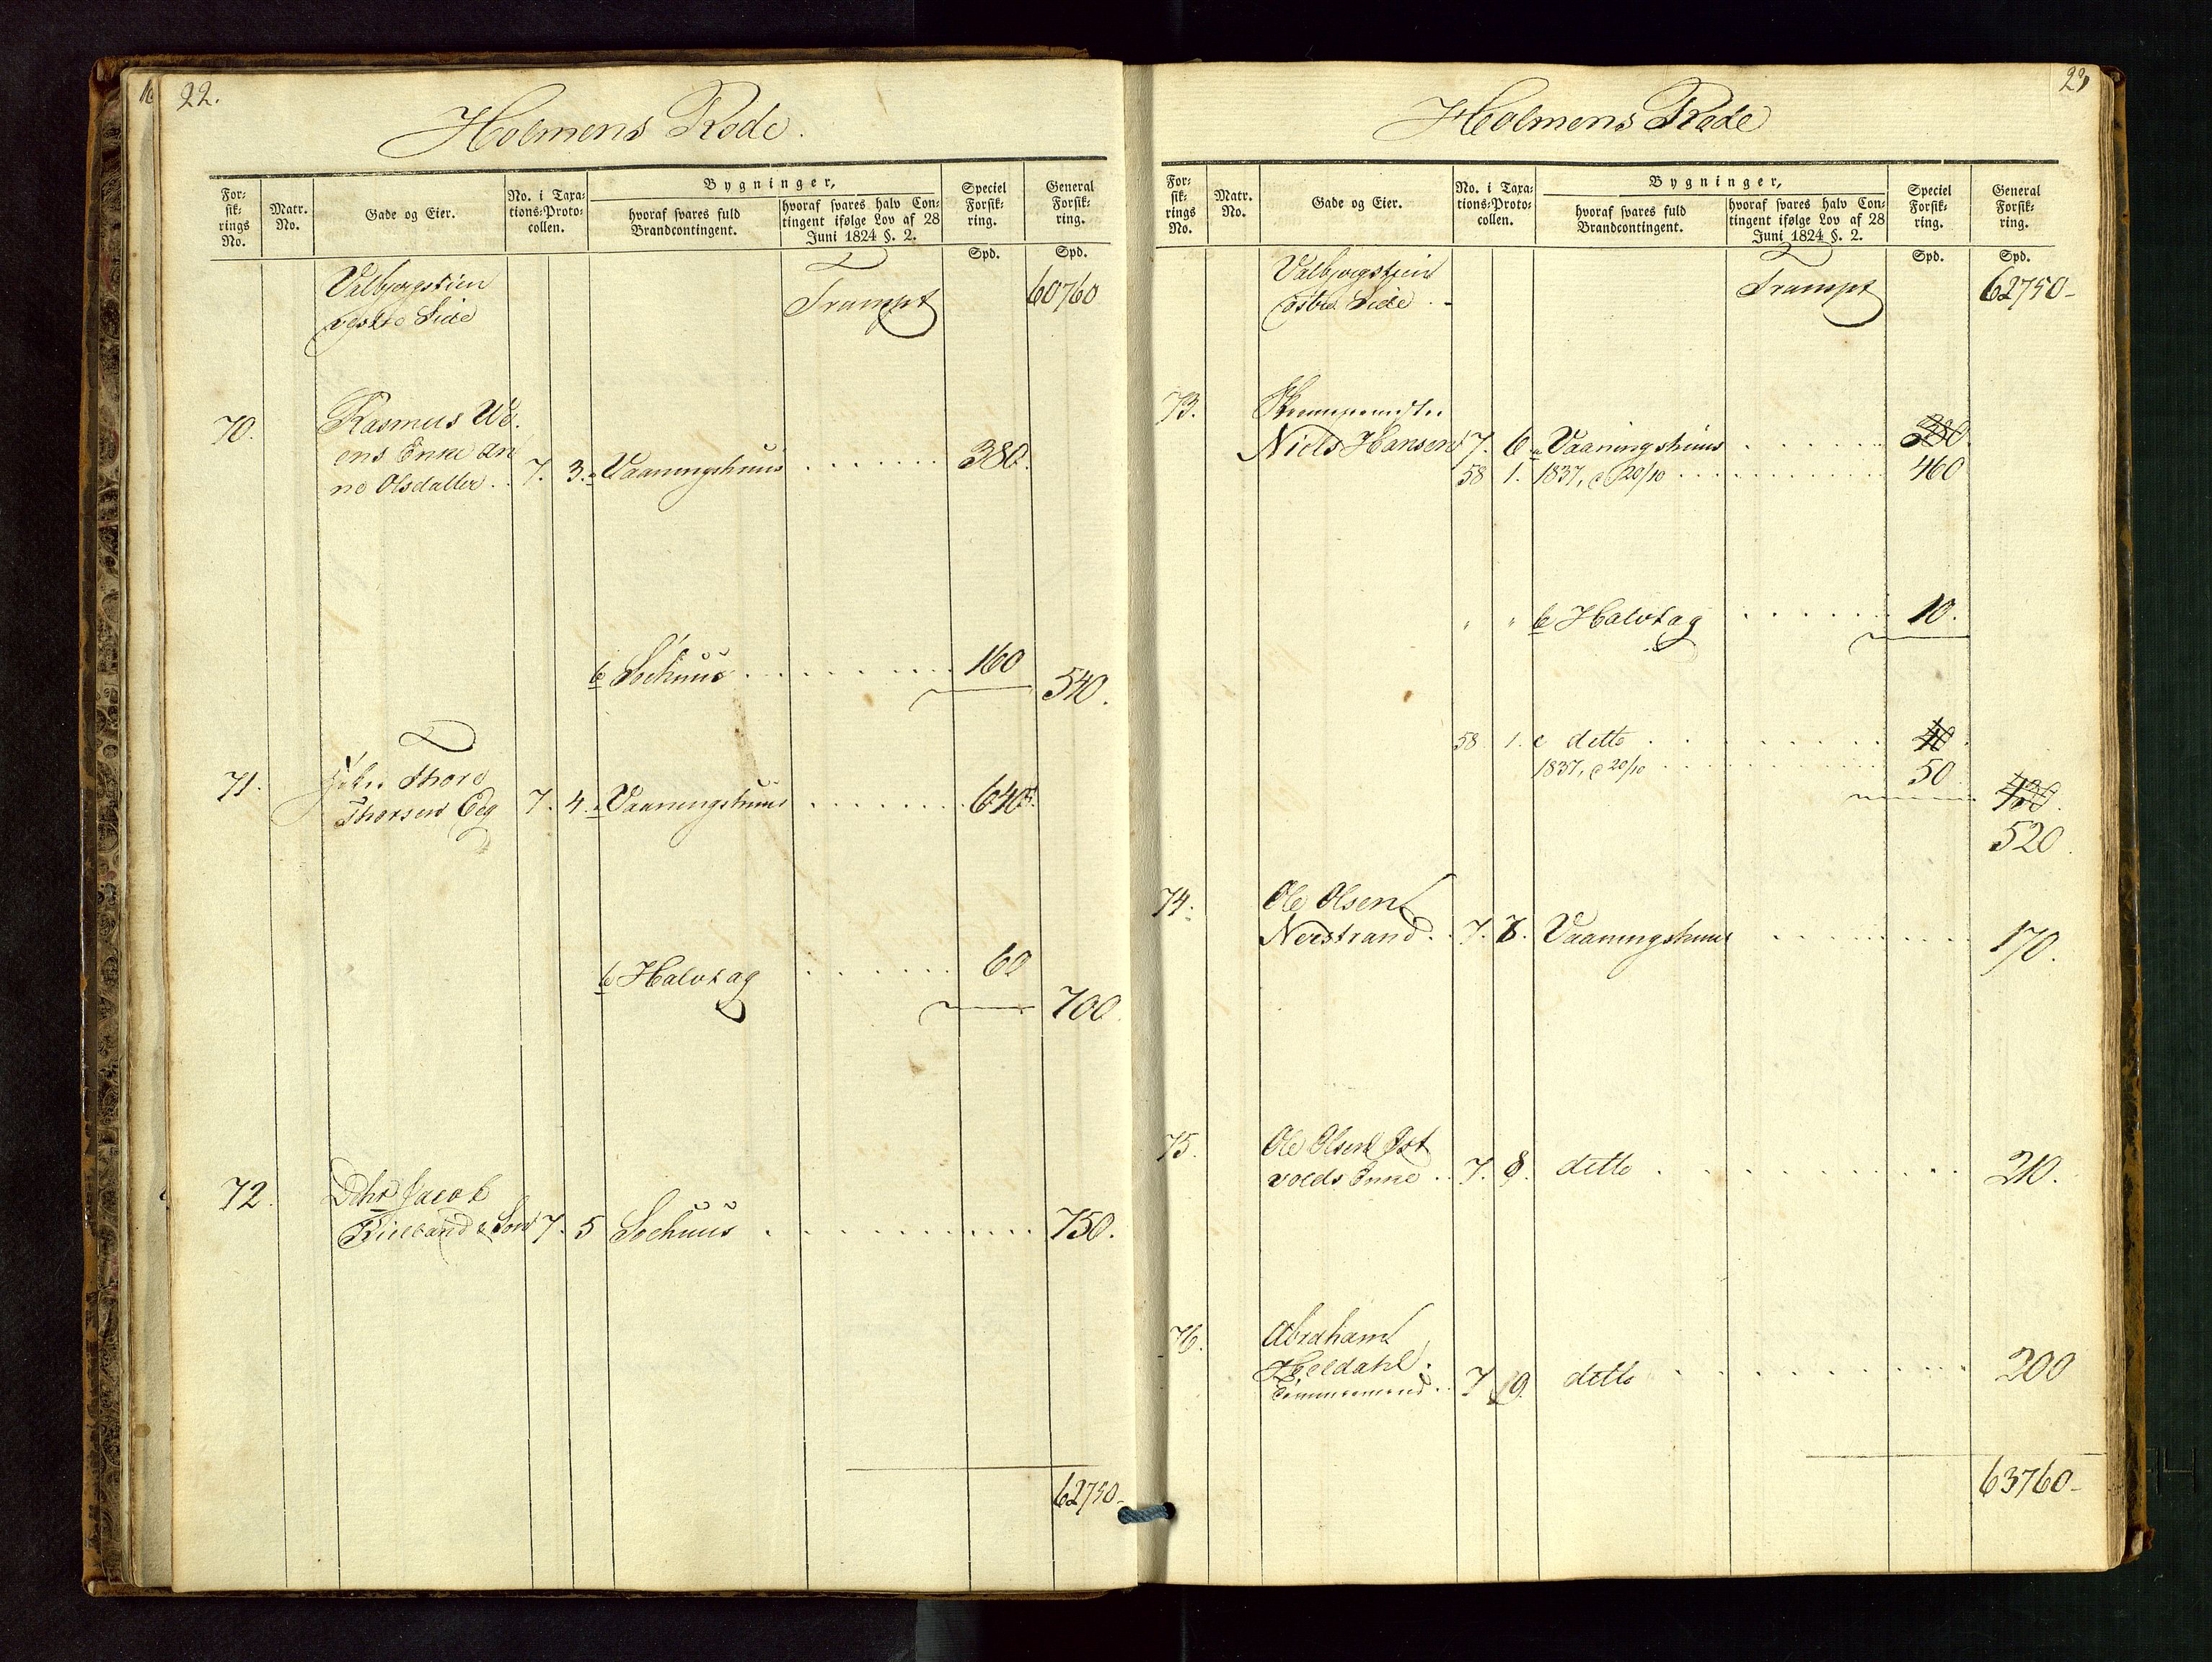 22.
Holmens Rode.
For-
sik-
rings
No.
Matr.
No.
Gade og Eier.
No. i Taxa-
tions-Proto-
collen.
Bygninger,
hvoraf svares fuld
Brandcontingent.
hvoraf svares halv Con-
tingent ifølge Lov af 28
Juni 1824 §. 2.
Speciel
Forsik-
ring.
General
Forsik-
ring.
Spd.
Spd.
Valbjergstien
vestre Side
Transpt
60760
70.
Rasmus
ens Enke An
ne Olsdatter. 7. 3. a Vaaningshuus 380.
b Søehuus 160
540.
71.
Thore
Thorsen Eeg 7. 4. a Vaaningshuus 640.
b Halvtag 60
700
72.
Dhr Jacob
Kielland & Søn 7. 5 Søehuus 750.
62750-
23
Holmens Rode
For-
sik-
rings
No.
Matr.
No.
Gade og Eier.
No. i Taxa-
tions-Proto-
collen.
Bygninger,
hvoraf svares fuld
Brandcontingent.
hvoraf svares halv Con-
tingent ifølge Lov af 28
Juni 1824 §. 2.
Speciel
Forsik-
ring.
General
Forsik-
ring.
Spd.
Spd.
Valbjergstien
østre Side
Transpt
62750-
73.
Niels Hansen 7. 6 a Vaaningshuus
58 1. 1837, 20/10 460
" " b Halvtag 10.
58 1. c detto
1837, 20/10 50
520
74.
Ole Olsen
Nerstrand. 7. 7. Vaaningshuus 170.
75.
Ole Olsen Øst
volds Enke 7. 8. detto 210.
76.
Abraham
Heldahl.
Tømmermand. 7 9. detto 200
63760-